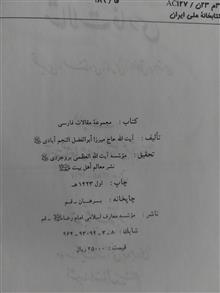 ۳م ۲۳ن / AC۱۲۷
کتابخانهٔ ملی ایران
کتاب: مجموعهٔ مقالات فارسی
تألیف: آیت الله حاج میرزا ابوالفضل النجم آبادی
تحقیق: مؤسسه آیت الله العظمی بروجردی
نشر معالم اهل بیت
چاپ: اول ۱۴۲۳ هـ
چاپخانه: برهان ـ قم
ناشر: مؤسّسه معارف اسلامی امام رضا ـ قم
شابک: ۸ ـ ۳ ـ ۹۳۰۹۲ ـ ۹۶۴
قیمت: ۲۵۰۰۰ ریال